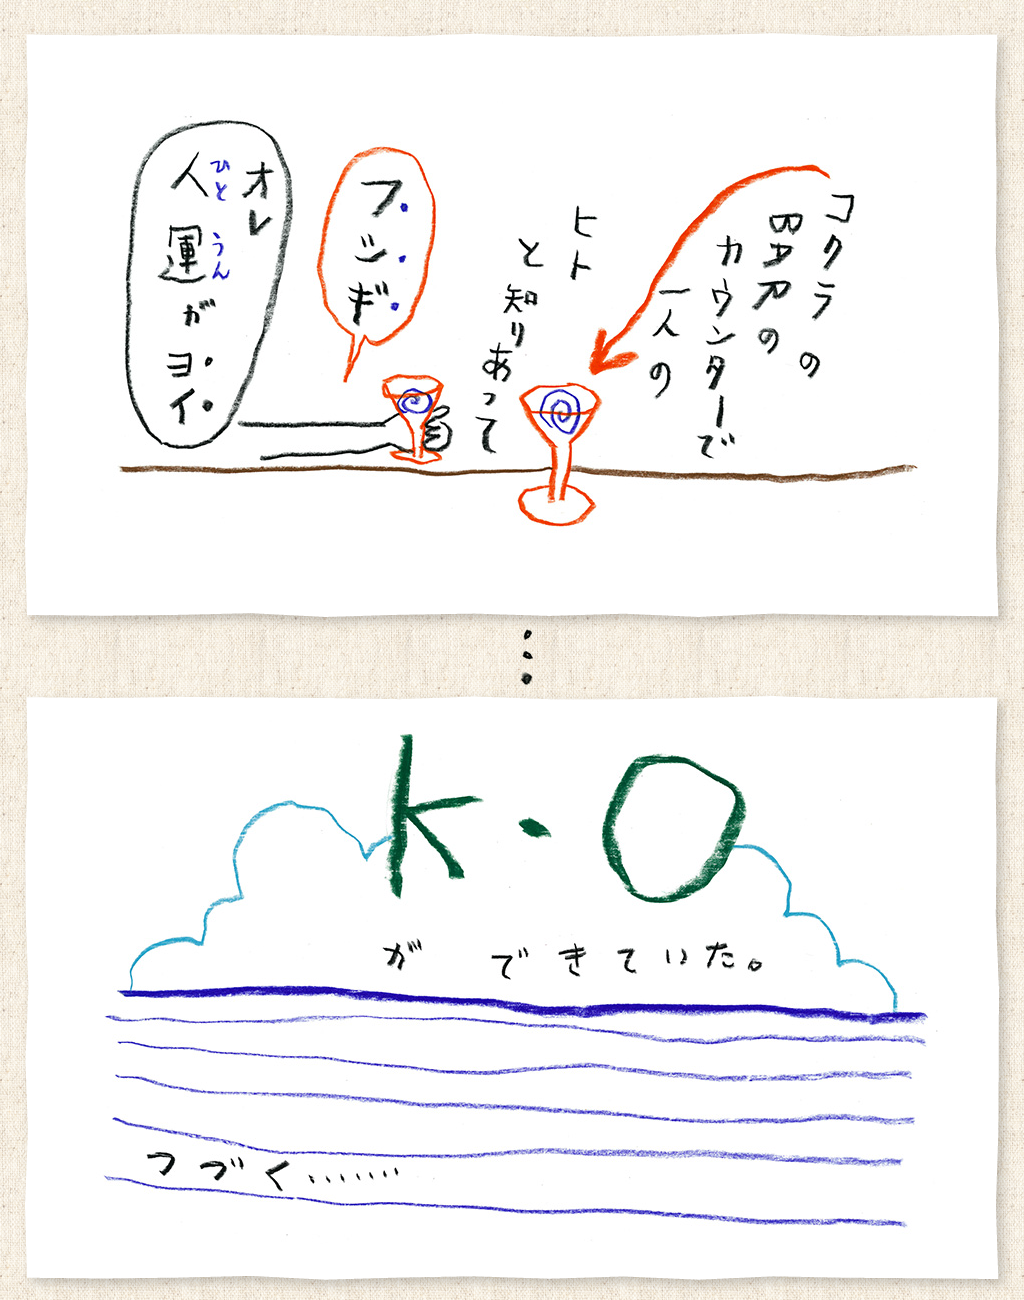 コクラの
BARの
カウンターで
一人の
ヒト
と知りあって
フシギ
オレ
人運がヨイ
ひとうん
K・O
ができていた。
つづく.......